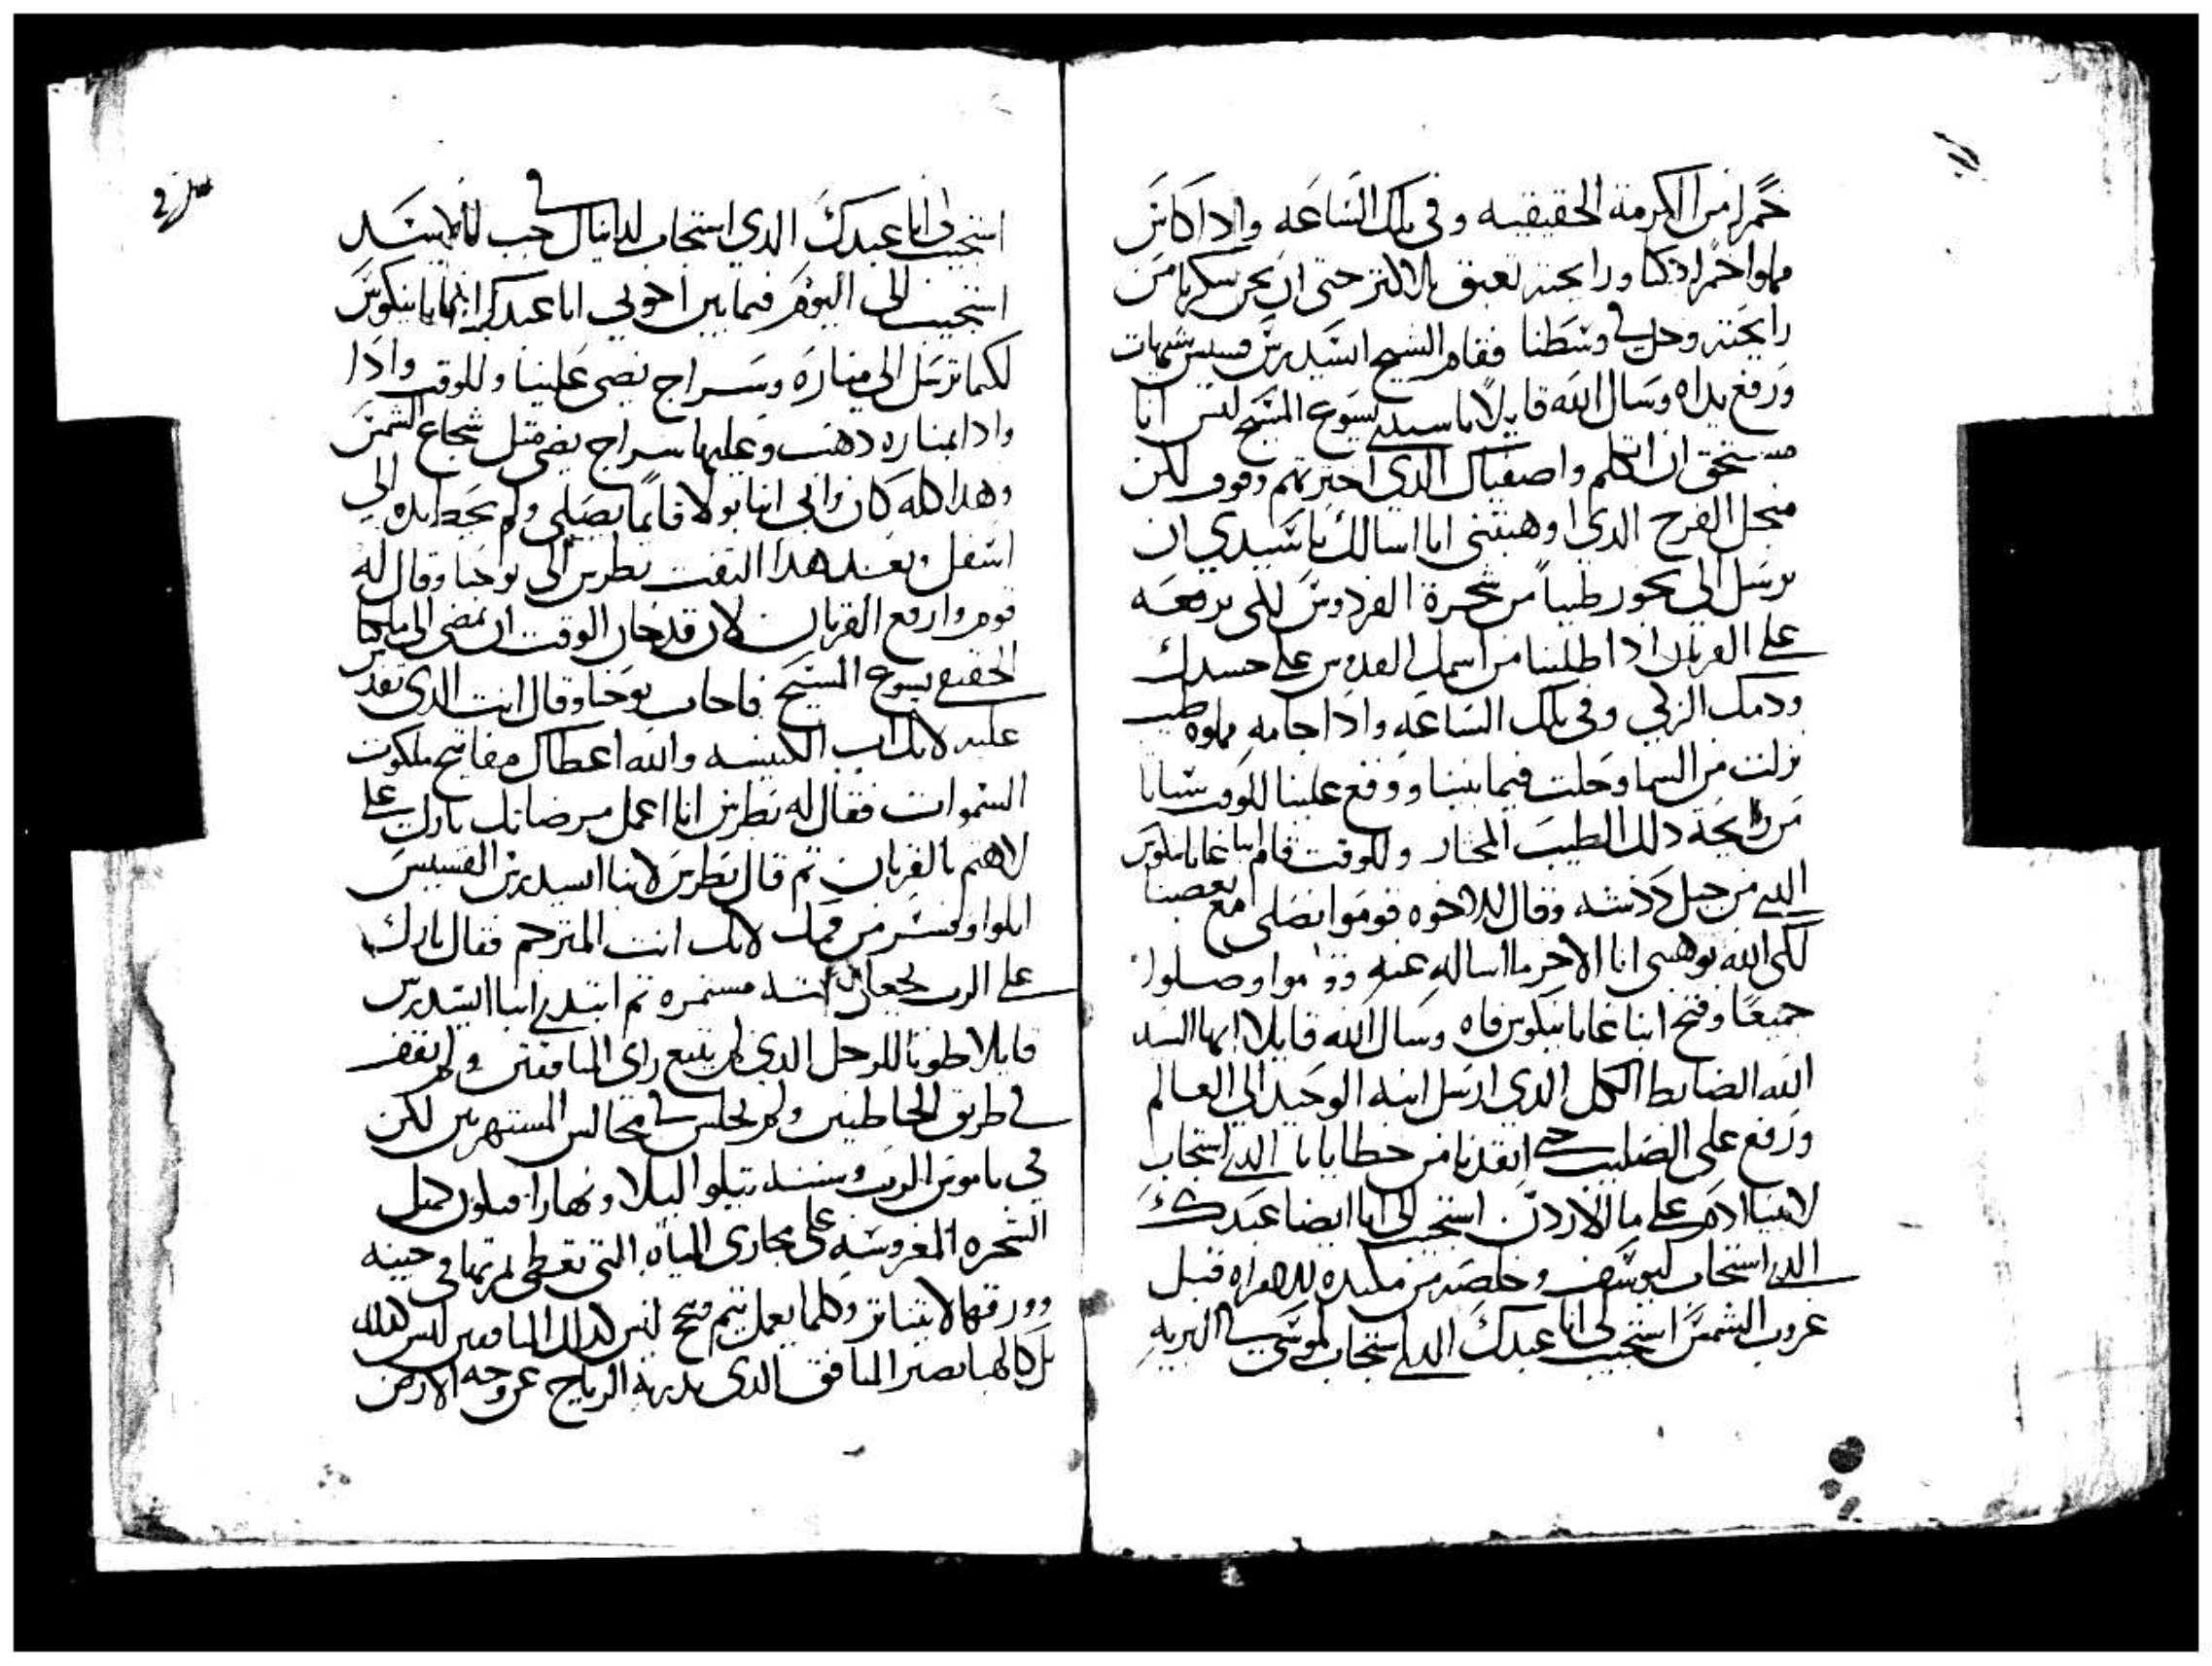 خمرا من الكرمة الحقيقيه وفي تلك الساعه واذا كاس
مملوا خمرا ذكيا ورايحته تعبق بالاكتر حتى ان نحن سكرنا من
رايحته وحل في وسطنا فقام الشيخ قسيس شيهات
ورفع يداه وسال الله قايلا يا سيدي يسوع المسيح ليس انا
مستحق ان اتكلم واصفياك الذي اخترتهم وقوف لكن
من اجل الفرح الذي اوهبتني انا اسالك يا سيدي ان
ترسل الي بخور طيبا من شجرة الفردوس لكي نرفعه
على القربان اذا طلبنا من اسمك القدوس على جسدك
ودمك الزكي وفي تلك الساعه واذا جامه مملوه طيب
نزلت من السما وحلت فيما بيننا ووقع علينا للوقت سباتا
من رايحة ذلك الطيب المختار وللوقت قام انبا غابانيكوس
الذي من جبل وقال للاخوه قوموا نصلي مع بعضنا
لكي الله يوهبني انا الاخر ما اساله عنه وقاموا وصلوا
جميعا وفتح انبا غابانيكوس فاه وسال الله قايلا ايها السيد
الله الضابط الكل الذي ارسل ابنه الوحيد الي العالم
ورفع على الصليب حتى انقذنا من خطايانا الذي استجاب
لابينا ادم على ما الاردن استجيب لي انا ايضا عبدك
الذي استجاب ليوسف وخلصه من مكيده للامراه قبل
غروب الشمس استجيب لي انا عبدك الذي استجاب لموسى في البريه
استجيب لي انا عبدك الذي استجاب لدانيال في جب
استجيب الي اليوم فيما بين اخوتي انا عبدك
لكيما ترسل الي مناره وسراج تضي علينا وللوقت واذا
واذا بمناره دهب وعليها سراج يضي متل شجاع الشمس
وهدا كله كان وابي انبا بولا قايما يصلي ولم يحط يده الي
اسفل وبعد هدا التفت بطرس الي يوحنا وقال له
قوم وارفع القربان لان قد حان الوقت ان نمضي الي ملكنا
الحقيقي يسوع المسيح فاجاب يوحنا وقال انت الذي تقدس
عليه لانك اب الكنيسه والله اعطاك مفاتيح ملكوت
السموات فقال له بطرس انا اعمل مرضاتك بارك علي
لاهتم بالقربان تم قال بطرس لانبا القسيس
اتلوا وفسر من فمك لانك انت المترجم فقال بارك
علي الرب يجعل مستمره تم ابتدي انبا
قايلا طوبا للرجل الذي لم يتبع راي المنافقين ولم يقف
في طريق الخاطيين ولم يجلس في مجالس المستهزيين لكن
في ناموس الرب وسننه يتلوا ليلا ونهارا فيكون كمثل
الشجره المغروسه على مجاري المياه التي تعطي تمرتها في حينه
وورقها لا يتناتر وكلما يعمل يتم فيح ليس كذلك المنافقين ليس كذلك
بل كالهبا يصير المنافق الذي تدريه الرياح عن وجه الارض